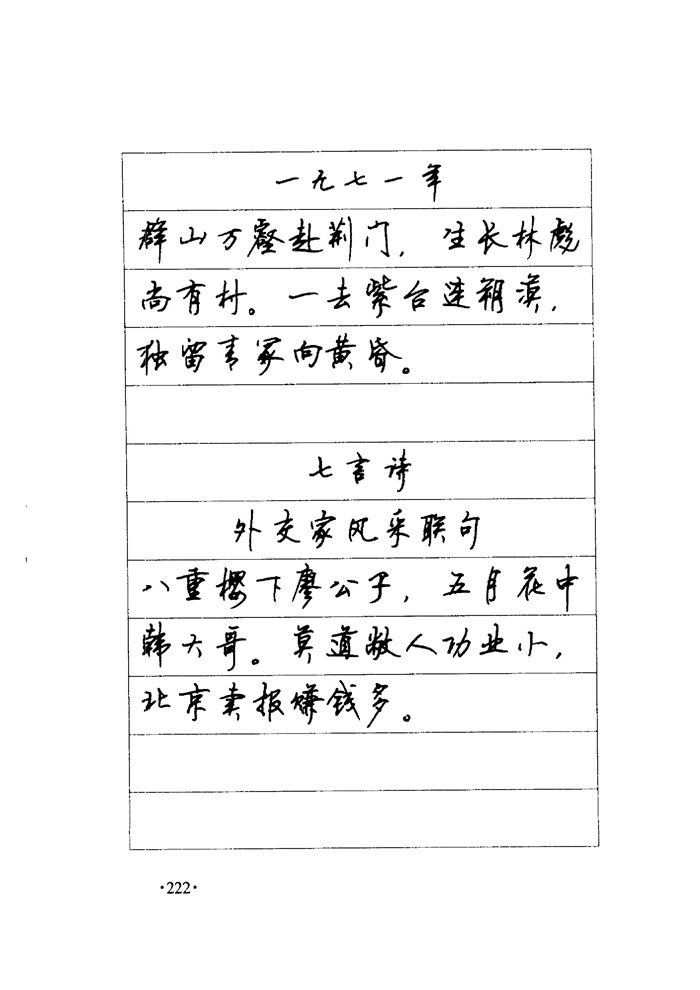 一九七一年
群山万壑赴荆门，生长林彪
尚有村。一去紫台连朔漠，
独留青冢向黄昏。
七言诗
外交家风采联句
八重樱下廖公子，五月花中
韩大哥。莫道敝人功业小，
北京卖报赚钱多。
·222·